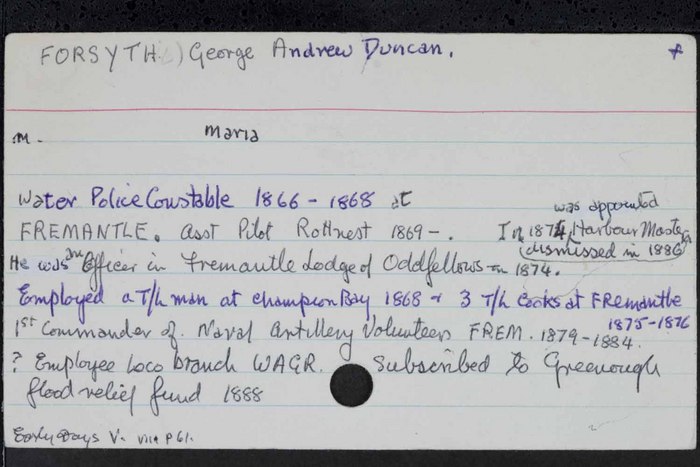 FORSYTH. ) George Andrew Duncan. +
m. Maria
Water Police Constable 1866 - 1868 at
was appointed
FREMANTLE. Asst Pilot Rottnest 1869 -. In 1874 Harbour Master
(dismissed in 1886)
He was an Officer in Fremantle Lodge of Oddfellows in 1874.
Employed a T/L man at Champion Bay 1868 & 3 T/L Cooks at Fremantle
1875-1876
1st Commander of Naval Artillery Volunteers FREM. 1879-1884.
? Employee Loco branch WAGR. Subscribed to Greenough
flood relief fund 1888
Early Days V. P61.